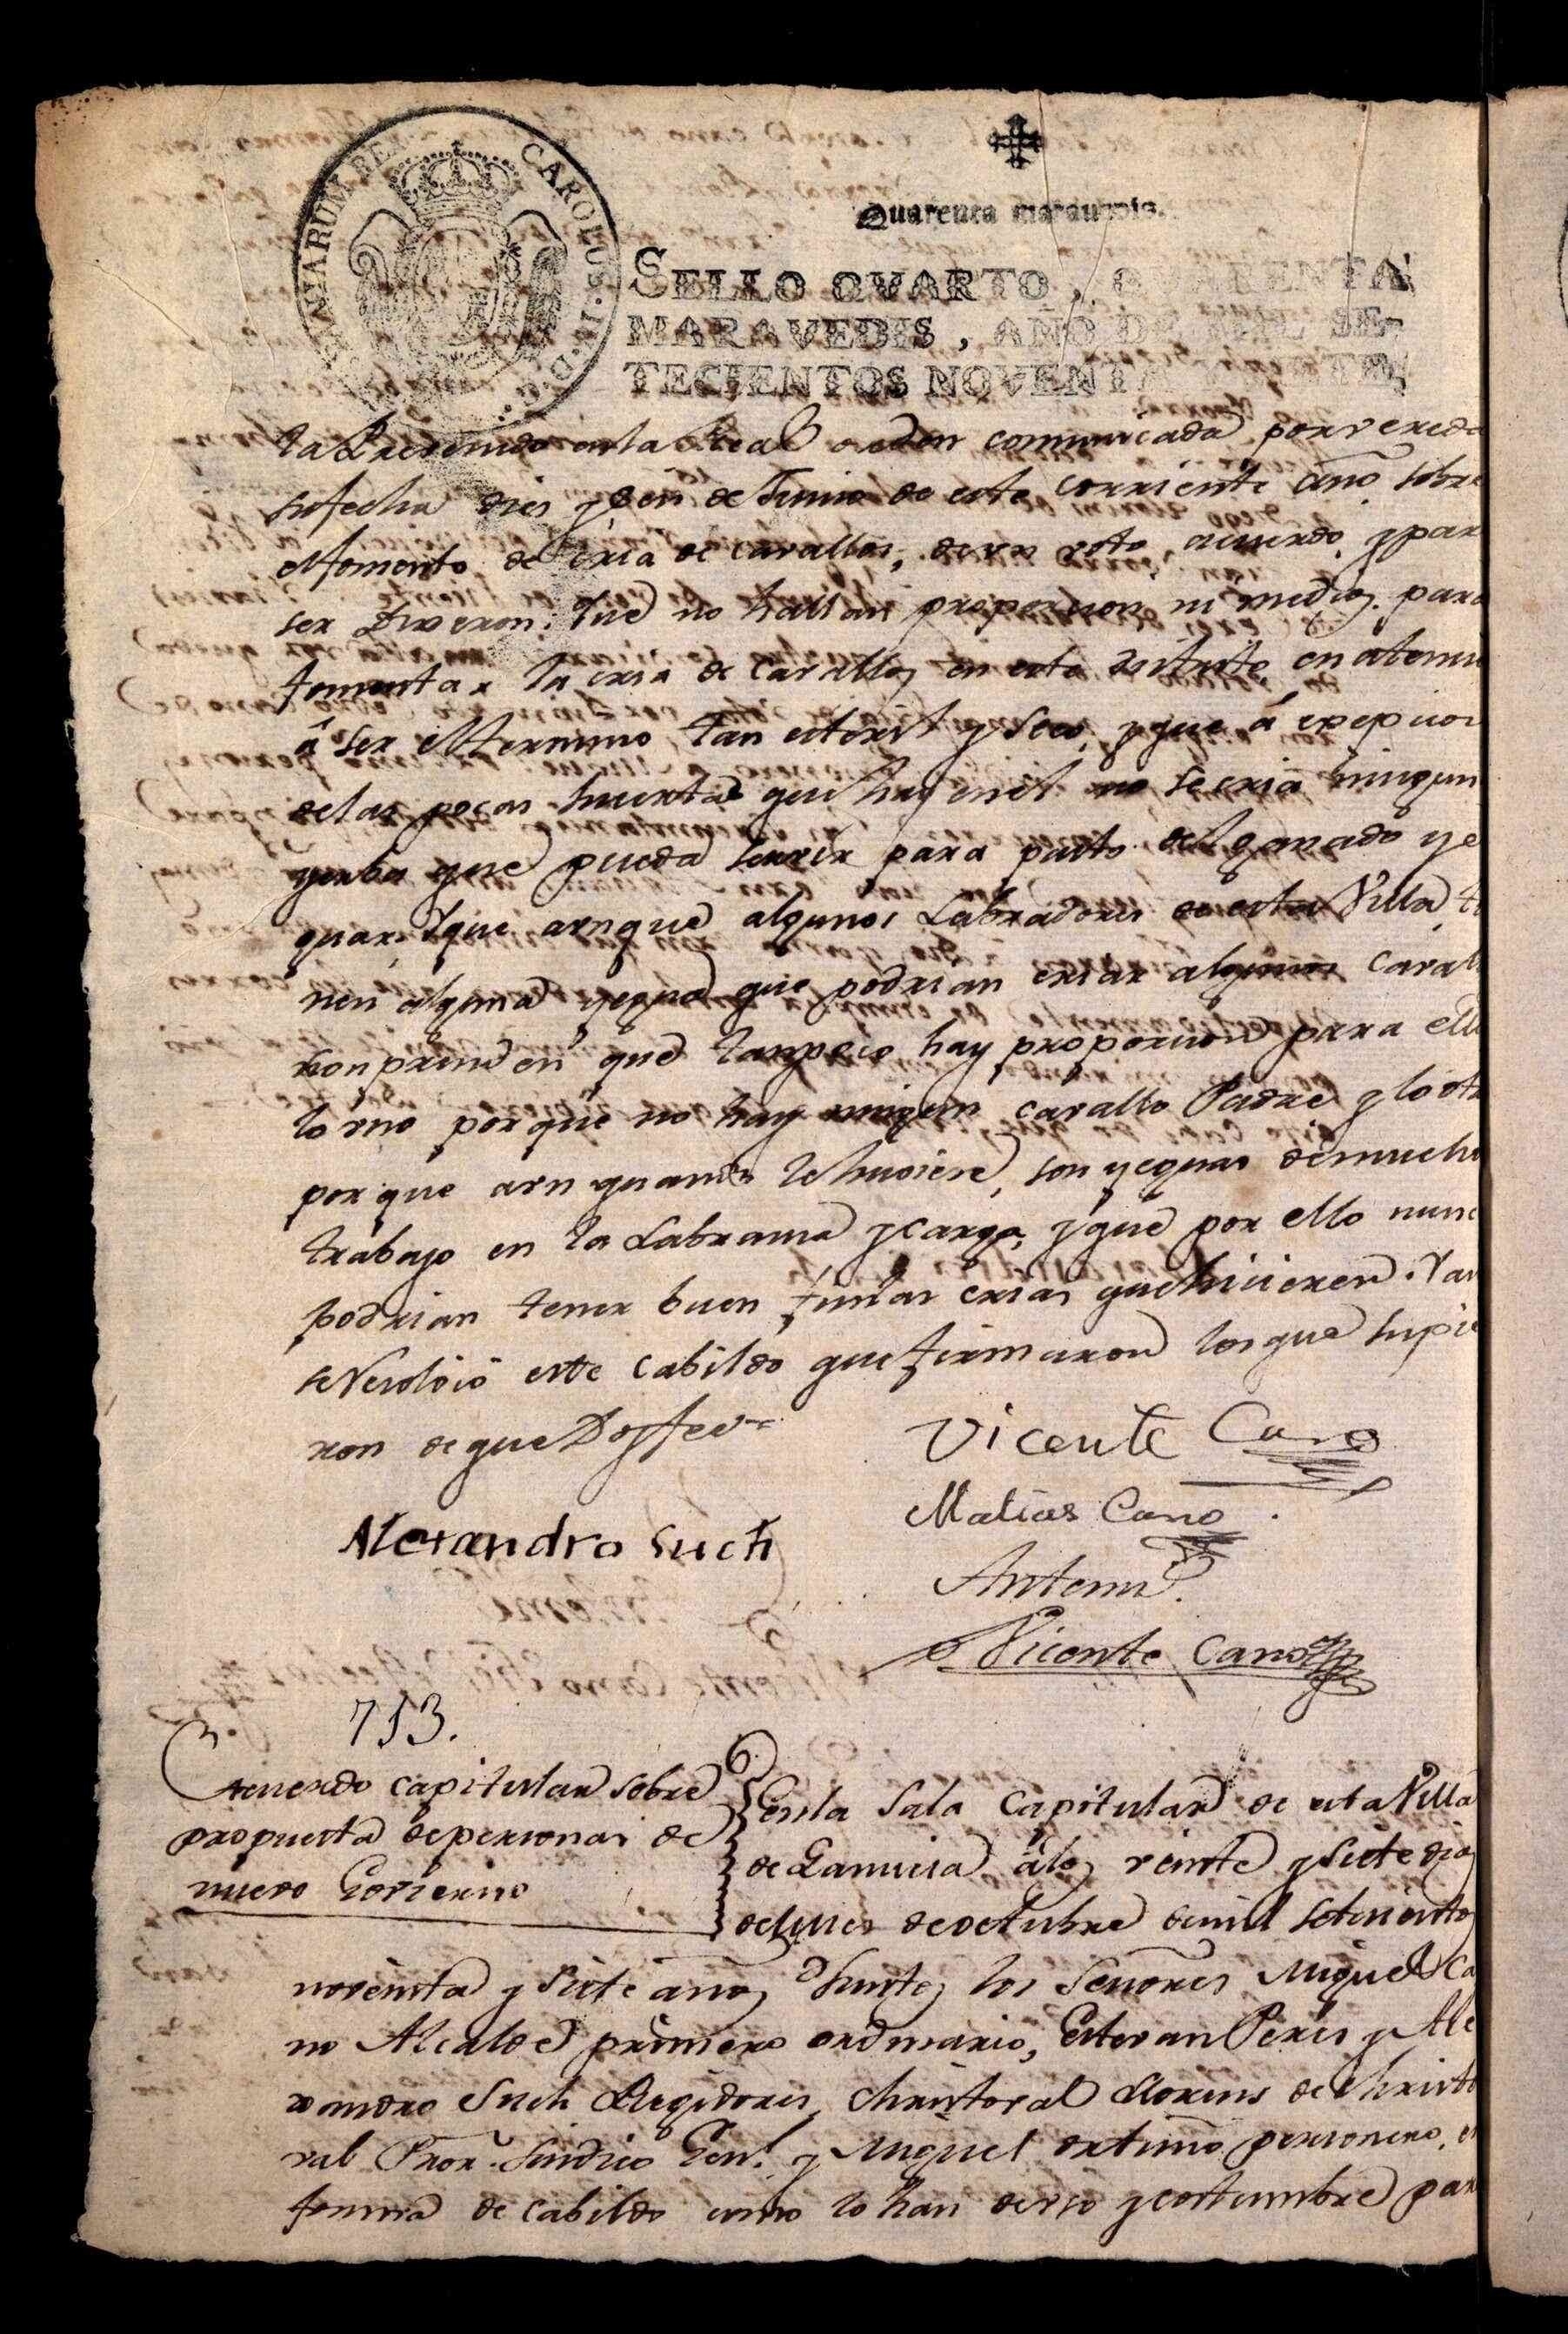 HISPANIARUM REX CAROLUS IV D
Quarenta marauedis.
SELLO QVARTO, QVARENTA
MARAVEDIS, AÑO DE MIL SE-
TECIENTOS NOVENTA Y SIETE
ta Prevenido en la Real orden comunicada por vereda
su fecha dies y seis de Junio de este corriente año sobre
el fomento de Cria de cavallos, de un voto, acuerdo, y par
ser Dixeron: Que no hallan proporcion ni medios para
fomentar la cria de cavallos en este distrito, en atenci
â ser el termino tan esteril y seco, y que á exepcion
de las pocas huertas que hay en el no se cria ningun
yerba que pueda servir para pasto del ganado ye
guar. Y que aunque algunos Labradores de esta Villa ti
nen alguna yegua que podrian criar algunos Caval
conprenden que tanpoco hay proporcion para ello
lo uno porque no hay ningun cavallo Padre y lo otr
porque aun quando le huviere, son yeguas de mucho
trabajo en la Labransa y carga, y que por ello nunc
podrian tener buen fin las crias que hicieren. Y as
se resolvió este Cabildo que firmaron los que supie
ron de que Doy fee
Vicente Cano
Matias Cano
Alexandro Such
Antemi
Vicente Cano
713.
Acuerdo capitular sobre
propuesta de personas de
nuevo Govierno
En la Sala Capitular de esta Villa
de Lanucia â los veinte y siete dias
del mes de octubre de mil setecientos
noventa y siete años Juntos los Señores Miguel Ca
no Alcalde primero ordinario, Estevan Peris y Ale
xandro Such Regidores, Christoval Llorens de Christo
val Pror. Sindico Genl. y Miguel ortuño personero, en
forma de cabildo como lo han de uso y costumbre par